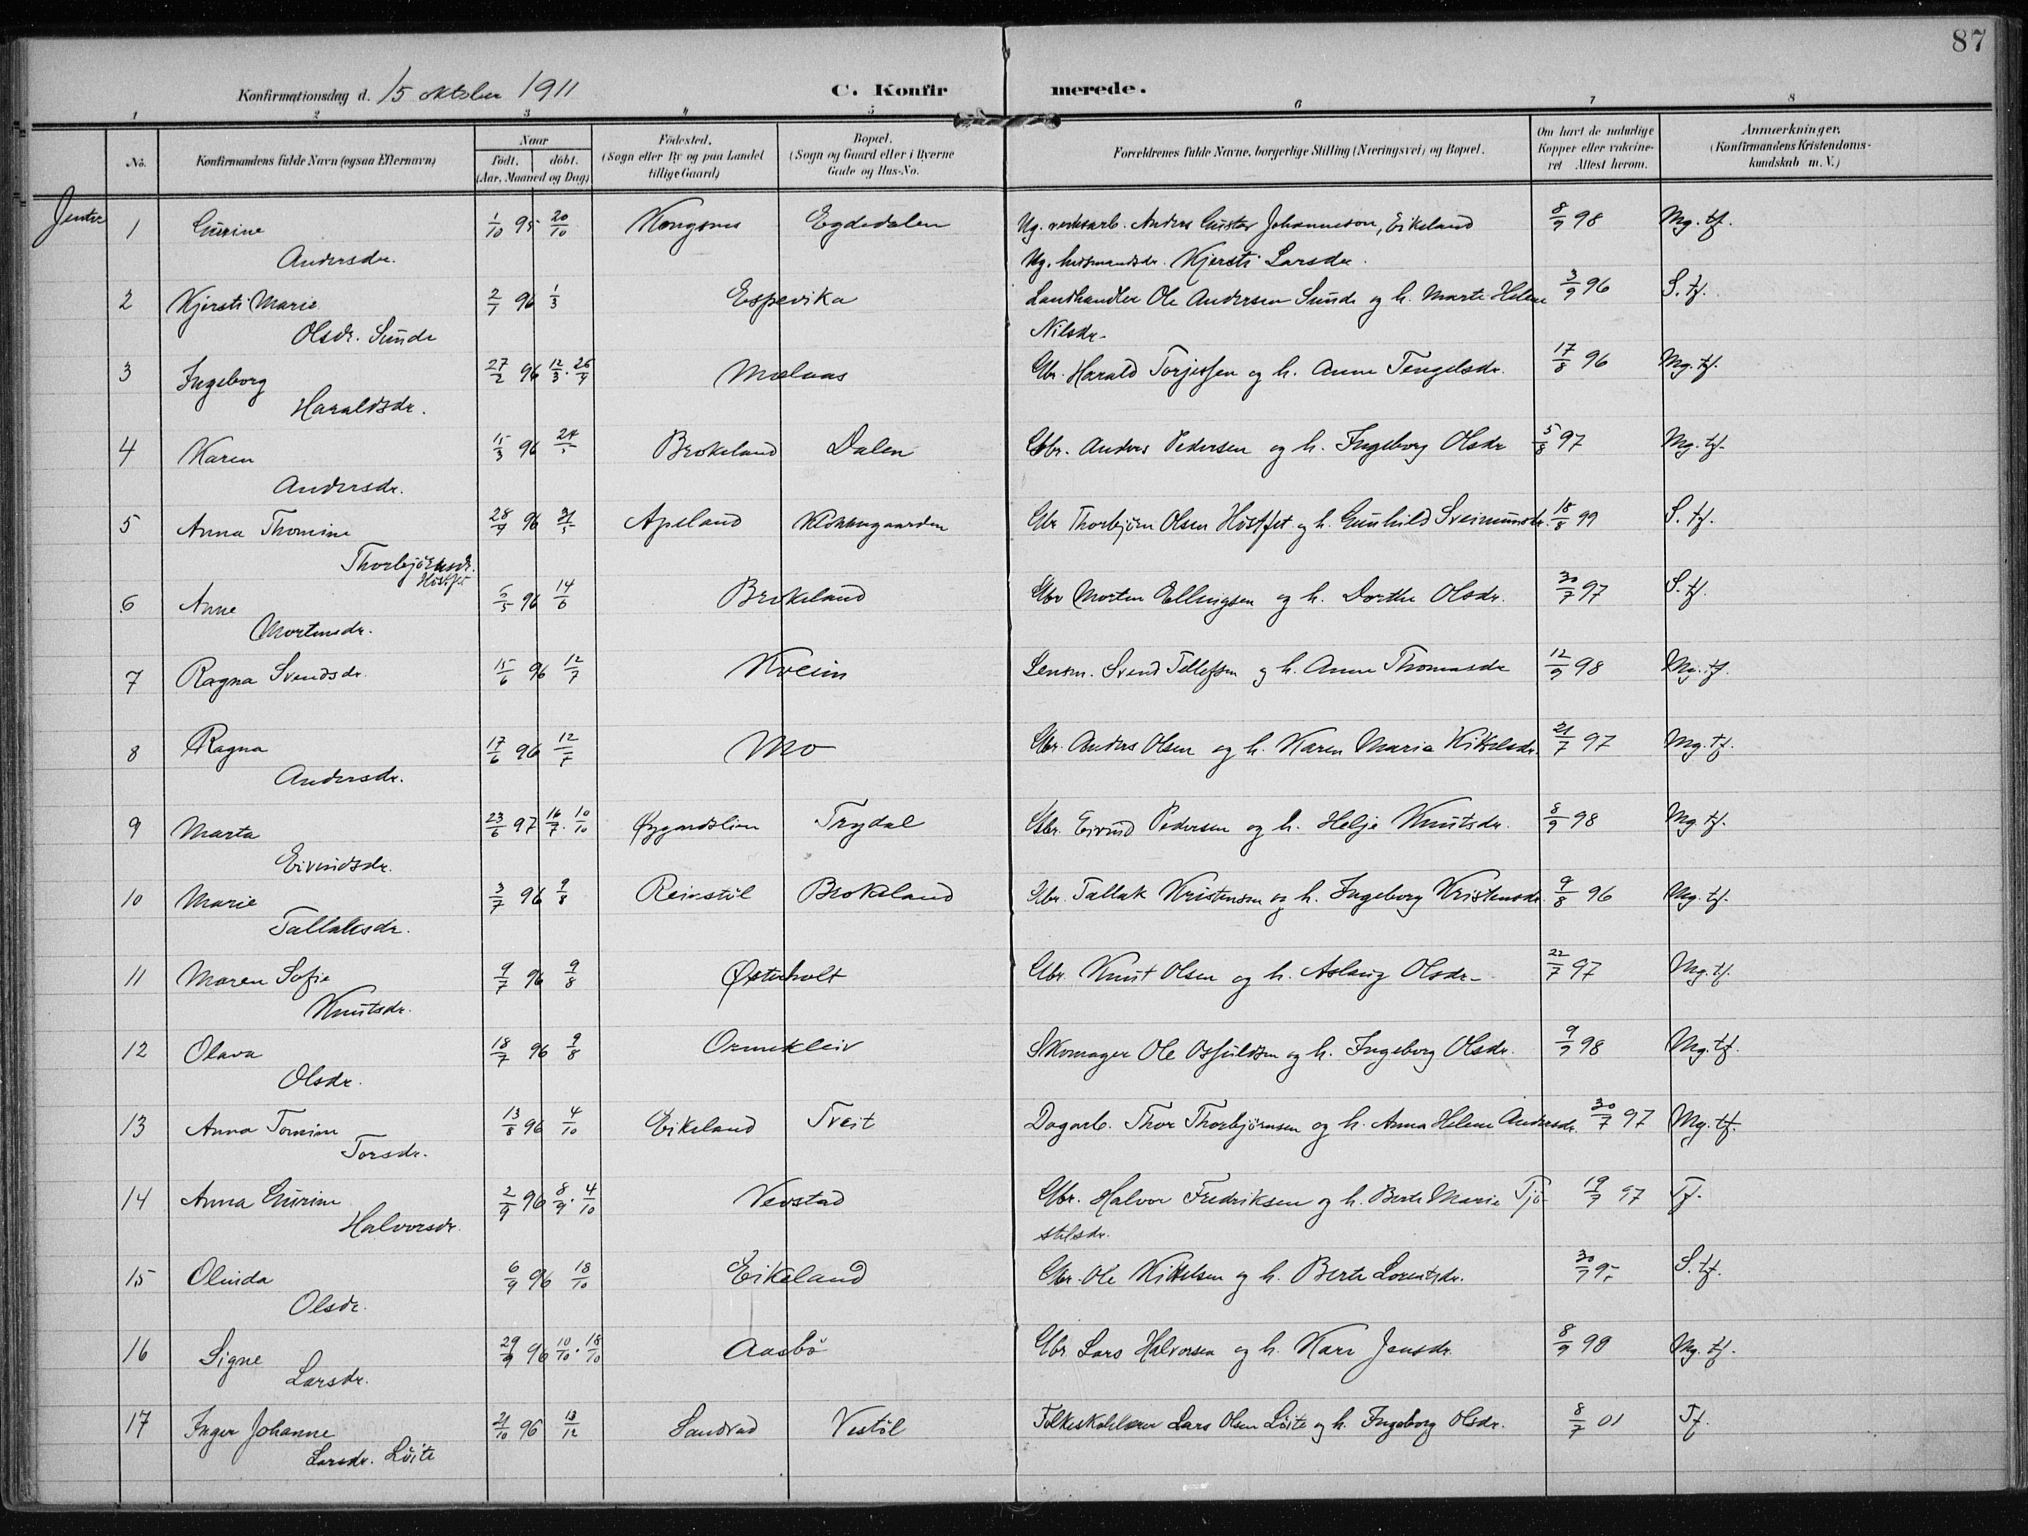 87
Konfirmationsdag d. 15 oktober 1911
C. Konfirmerede.
1 2 3 4 5 6 7 8
No.
Konfirmandens fulde Navn (ogsaa Efternavn)
Naar
født. døbt.
(Aar, Maaned og Dag)
Fødested.
(Sogn eller By og paa Landet
tillige Gaard)
Bopæl.
(Sogn og Gaard eller i Byerne
Gade og Hus-No.
Forældrenes fulde Navne, borgerlige Stilling (Næringsvei) og Bopæl.
Om havt de naturlige
Kopper eller vakcine-
ret Attest herom.
Anmærkninger.
(Konfirmandens Kristendoms-
kundskab m. V.)
Jenter
1 Gurine 1/10 95 20/10 Kongsnes Egdedalen Ug. verksarb. Anders Gustav Johannesson, Eikeland 8/9 98 Mg. tf.
Andersdr. Ug. husmandsdr. Kjersti Larsdr.
2 Kjersti Marie 2/1 96 1/3 Espevika Landhandler Ole Andersen Sunde og h. Marte Helene 3/9 96 S. tf.
Olsdr. Sunde Nilsdr.
3 Ingeborg 27/2 96 12/3 . 26/4 Mælaas Gbr. Harald Torjessen og h. Anne Tengelsdr. 17/8 96 Mg. tf.
Haraldsdr.
4 Karen 15/3 96 24/5 Brokeland Dalen Gbr. Anders Pedersen og h. Ingeborg Olsdr 5/8 97 Mg. tf.
Andersdr.
5 Anna Thomine 28/4 96 31/5 Apeland Klokkergaarden Gbr Thorbjørn Olsen Høstfet og h. Gunhild Sveinunsdr. 18/8 99 S. tf.
Thorbjørnsdr.
Høstfet
6 Anne 6/5 96 14/6 Brokeland Gbr Morten Ellingsen og h. Dorthe Olsdr. 30/7 97 S. tf.
Mortensdr.
7 Ragna Svendsdr. 15/6 96 12/7 Kveim Lensm. Svend Tellefsen og h. Anne Thomasdr 12/9 98 Mg. tf.
8 Ragna 17/6 96 12/7 Mo Gbr. Anders Olsen og h. Karen Maria Kittelsdr. 21/7 97 Mg. tf.
Andersdr.
9 Marta 23/6 97 16/7 . 10/10 Øygardslien Trydal Gbr. Eivind Pedersen og h. Helje Knutsdr. 8/9 98 Mg. tf.
Eivindsdr.
10 Marie 3/7 96 9/8 Reinstøl Brokeland Gbr. Tallak Kristensen og h. Ingeborg Kristensdr. 9/8 96 Mg. tf.
Tallaksdr.
11 Maren Sofie 9/7 96 9/8 Østerholt Gbr. Knut Olsen og h. Aslaug Olsdr. 22/7 97 Mg. tf.
Knutsdr.
12 Olava 18/7 96 9/8 Ormekleiv Skomager Ole Osfuldsen og h. Ingeborg Olsdr. 9/9 98 Mg. tf.
Olsdr.
13 Anna Tomine 13/8 96 4/10 Eikeland Tveit Dagarb. Thor Thorbjørnsen og h. Anna Helene Andersdr. 30/7 97 Mg. tf.
Torsdr.
14 Anna Gurine 2/9 96 8/9 . 4/10 Vevstad Gbr. Halvor Fredriksen og h. Berte Marie Tjø- 19/7 97 Tf.
Halvorsdr. stelsdr.
15 Olinda 6/9 96 18/10 Eikeland Gbr. Ole Kittelsen og h. Berte Lorentsdr. S. tf.
Olsdr.
16 Signe 29/9 96 10/10 . 18/10 Aasbø Gbr. Lars Halvorsen og h. Kari Jensdr. 8/9 98 Mg. tf.
Larsdr.
17 Inger Johanne 21/10 96 13/12 Sandvad Vestøl Folkeskolelærer Lars Olsen Løite og h. Ingeborg Olsdr. 8/7 01 Tf.
Larsdr. Løite